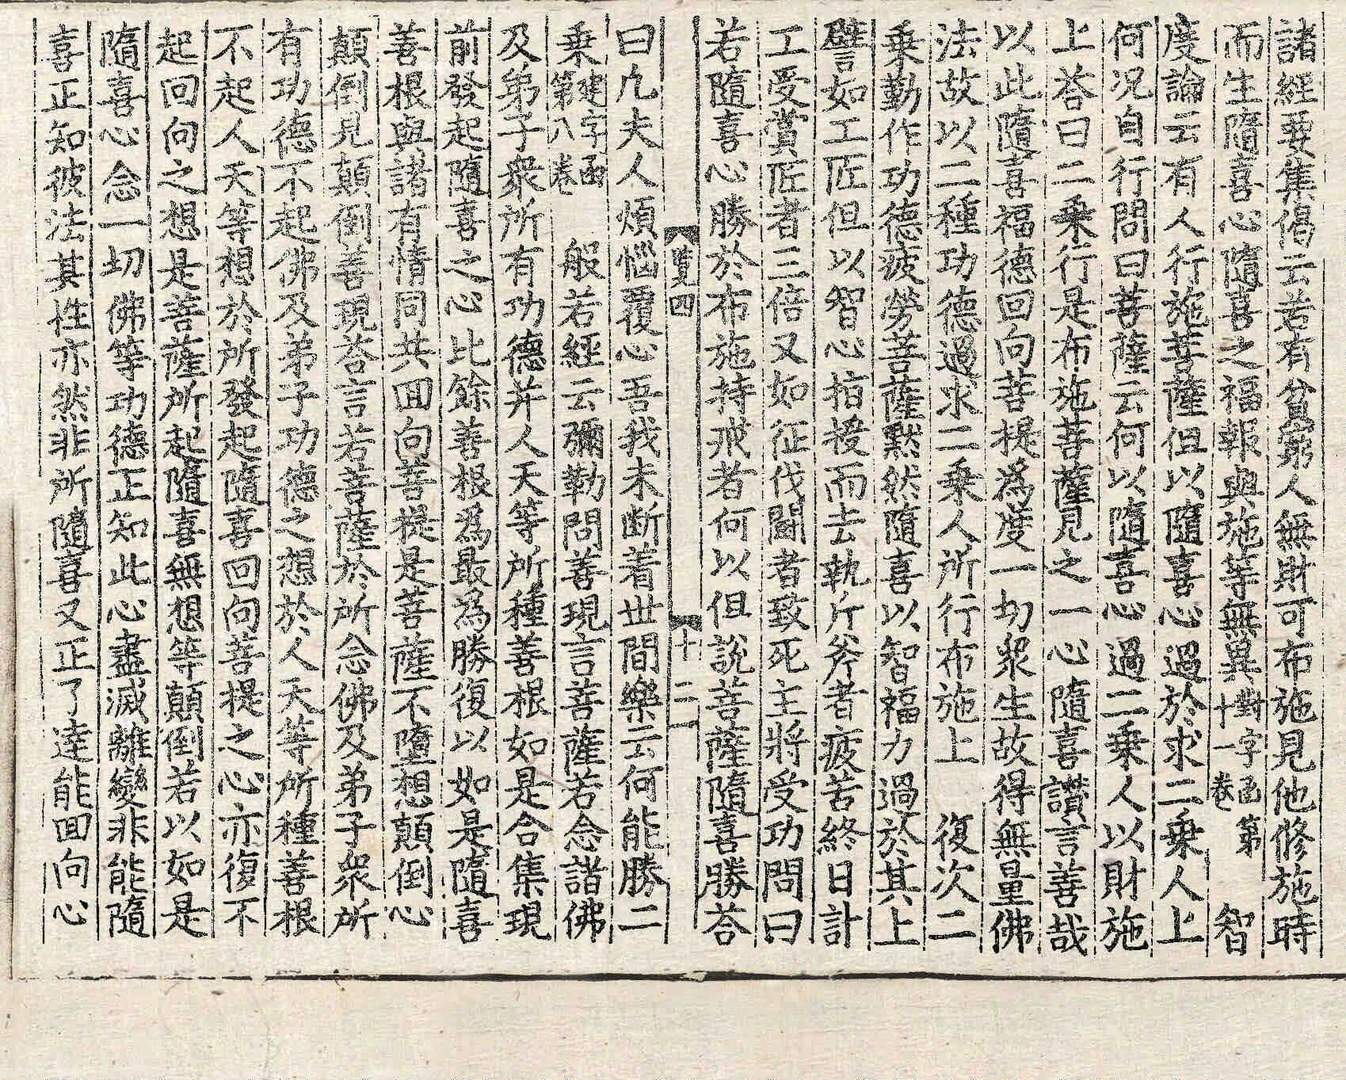 諸經要集偈云若有貧窮人無財可布施見他修施時
而生隨喜心隨喜之福報與施等無異對字函第十一卷 智
度論云有人行施菩薩但以隨喜心過於求二乗人上
何况自行問曰菩薩云何以隨喜心過二乗人以財施
上荅曰二乗行是布施菩薩見之一心隨喜讃言善哉
以此隨喜福德回向菩提為度一切衆生故得無量佛
法故以二種功德過求二乗人所行布施上 復次二
乗勤作功德疲勞菩薩黙然隨喜以智福力過於其上
譬如工匠但以智心指授而去執斤斧者疲苦終日計
工受賞匠者三倍又如征伐鬪者致死主將受功問曰
若隨喜心勝於布施持戒者何以但說菩薩隨喜勝荅
覽四 十二
曰凢夫人煩惱覆心吾我未断着世間樂云何能勝二
乗建字函第八卷 般若經云彌勒問善現言菩薩若念諸佛
及弟子衆所有功德并人天等所種善根如是合集現
前發起隨喜之心比餘善根為最為勝復以如是隨喜
善根與諸有情同共回向菩提是菩薩不墮想顛倒心
顛倒見顛倒善現荅言若菩薩於所念佛及弟子衆所
有功德不起佛及弟子功德之想於人天等所種善根
不起人天等想於所發起隨喜回向菩提之心亦復不
起回向之想是菩薩所起隨喜無想等顛倒若以如是
隨喜心念一切佛等功德正知此心盡滅離變非能隨
喜正知彼法其性亦然非所隨喜又正了逹能回向心